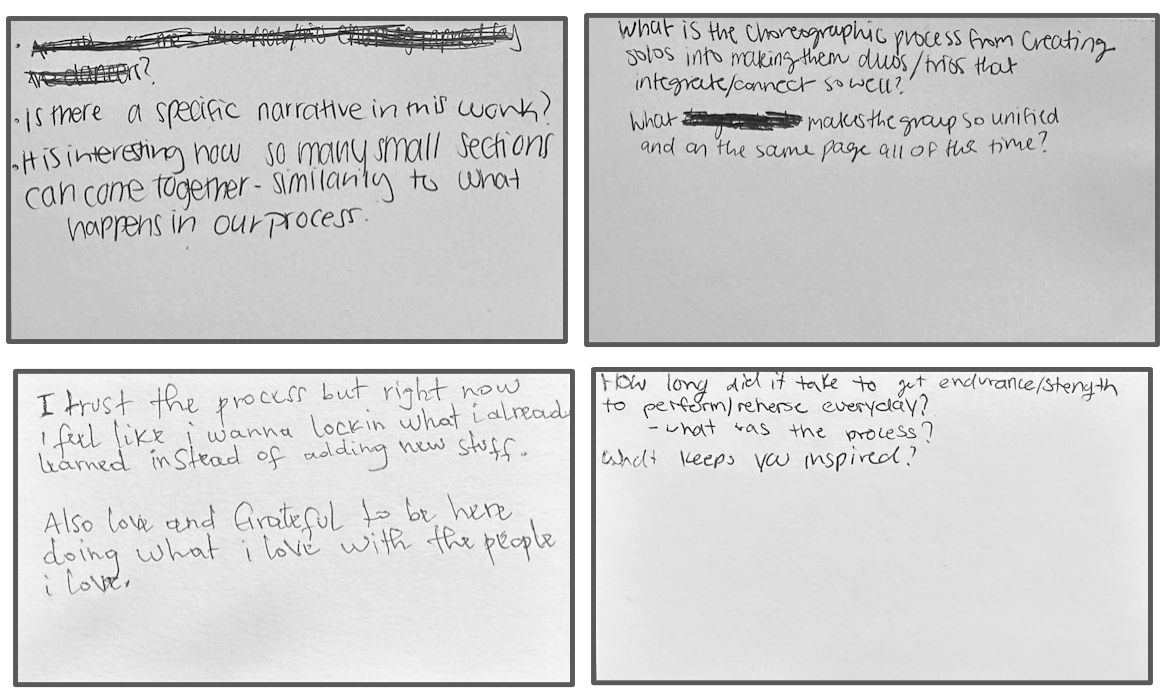 ?
• Is there a specific narrative in this work?
• It is interesting how so many small sections
can come together - similarily to what
happens in our process.
What is the Choreographic process from Creating
solos into making them duos/trios that
integrate/connect so well?
What makes the group so unified
and on the same page all of the time?
I trust the process but right now
i feel like i wanna lock in what i alread
learned instead of adding new stuff.
Also love and Grateful to be here
doing what i love with the people
i love.
How long did it take to get endurance/stength
to perform/reherse everyday?
- what was the process?
What keeps you inspired?